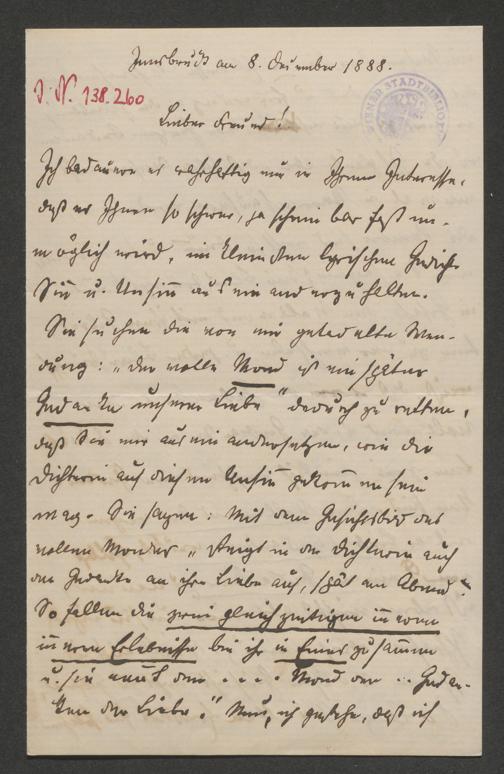 Innsbruck am 8. Dezember 1888.
I. N. 138.260
WIENER STADTBIBLIOTHEK
Lieber Freund!
Ich bedauere es wahrhaftig nur in Ihrem Interesse,
daß es Ihnen so schwer, ja scheinbar fast un-
möglich wird, im kleinsten lyrischen Gedicht
Sinn u. Unsinn auseinanderzuhalten.
Sie suchen die von mir getadelte Wen-
dung: „der volle Mond ist ein später
Gedanke unserer Liebe" dadurch zu retten,
daß Sie mir auseinandersetzen, wie die
Dichterin auf diesen Unsinn gekommen sein
mag. Sie sagen: Mit dem Gesichtsbild des
vollen Mondes „steigt in der Dichterin auch
der Gedanke an ihre Liebe auf, spät am Abend".
So fallen die zwei gleichzeitigen inneren
inneren Erlebnisse bei ihr in Eines zusammen
u. sie nennt den .... Mond den .. Gedan-
ken der Liebe." Nun, ich gestehe, daß ich